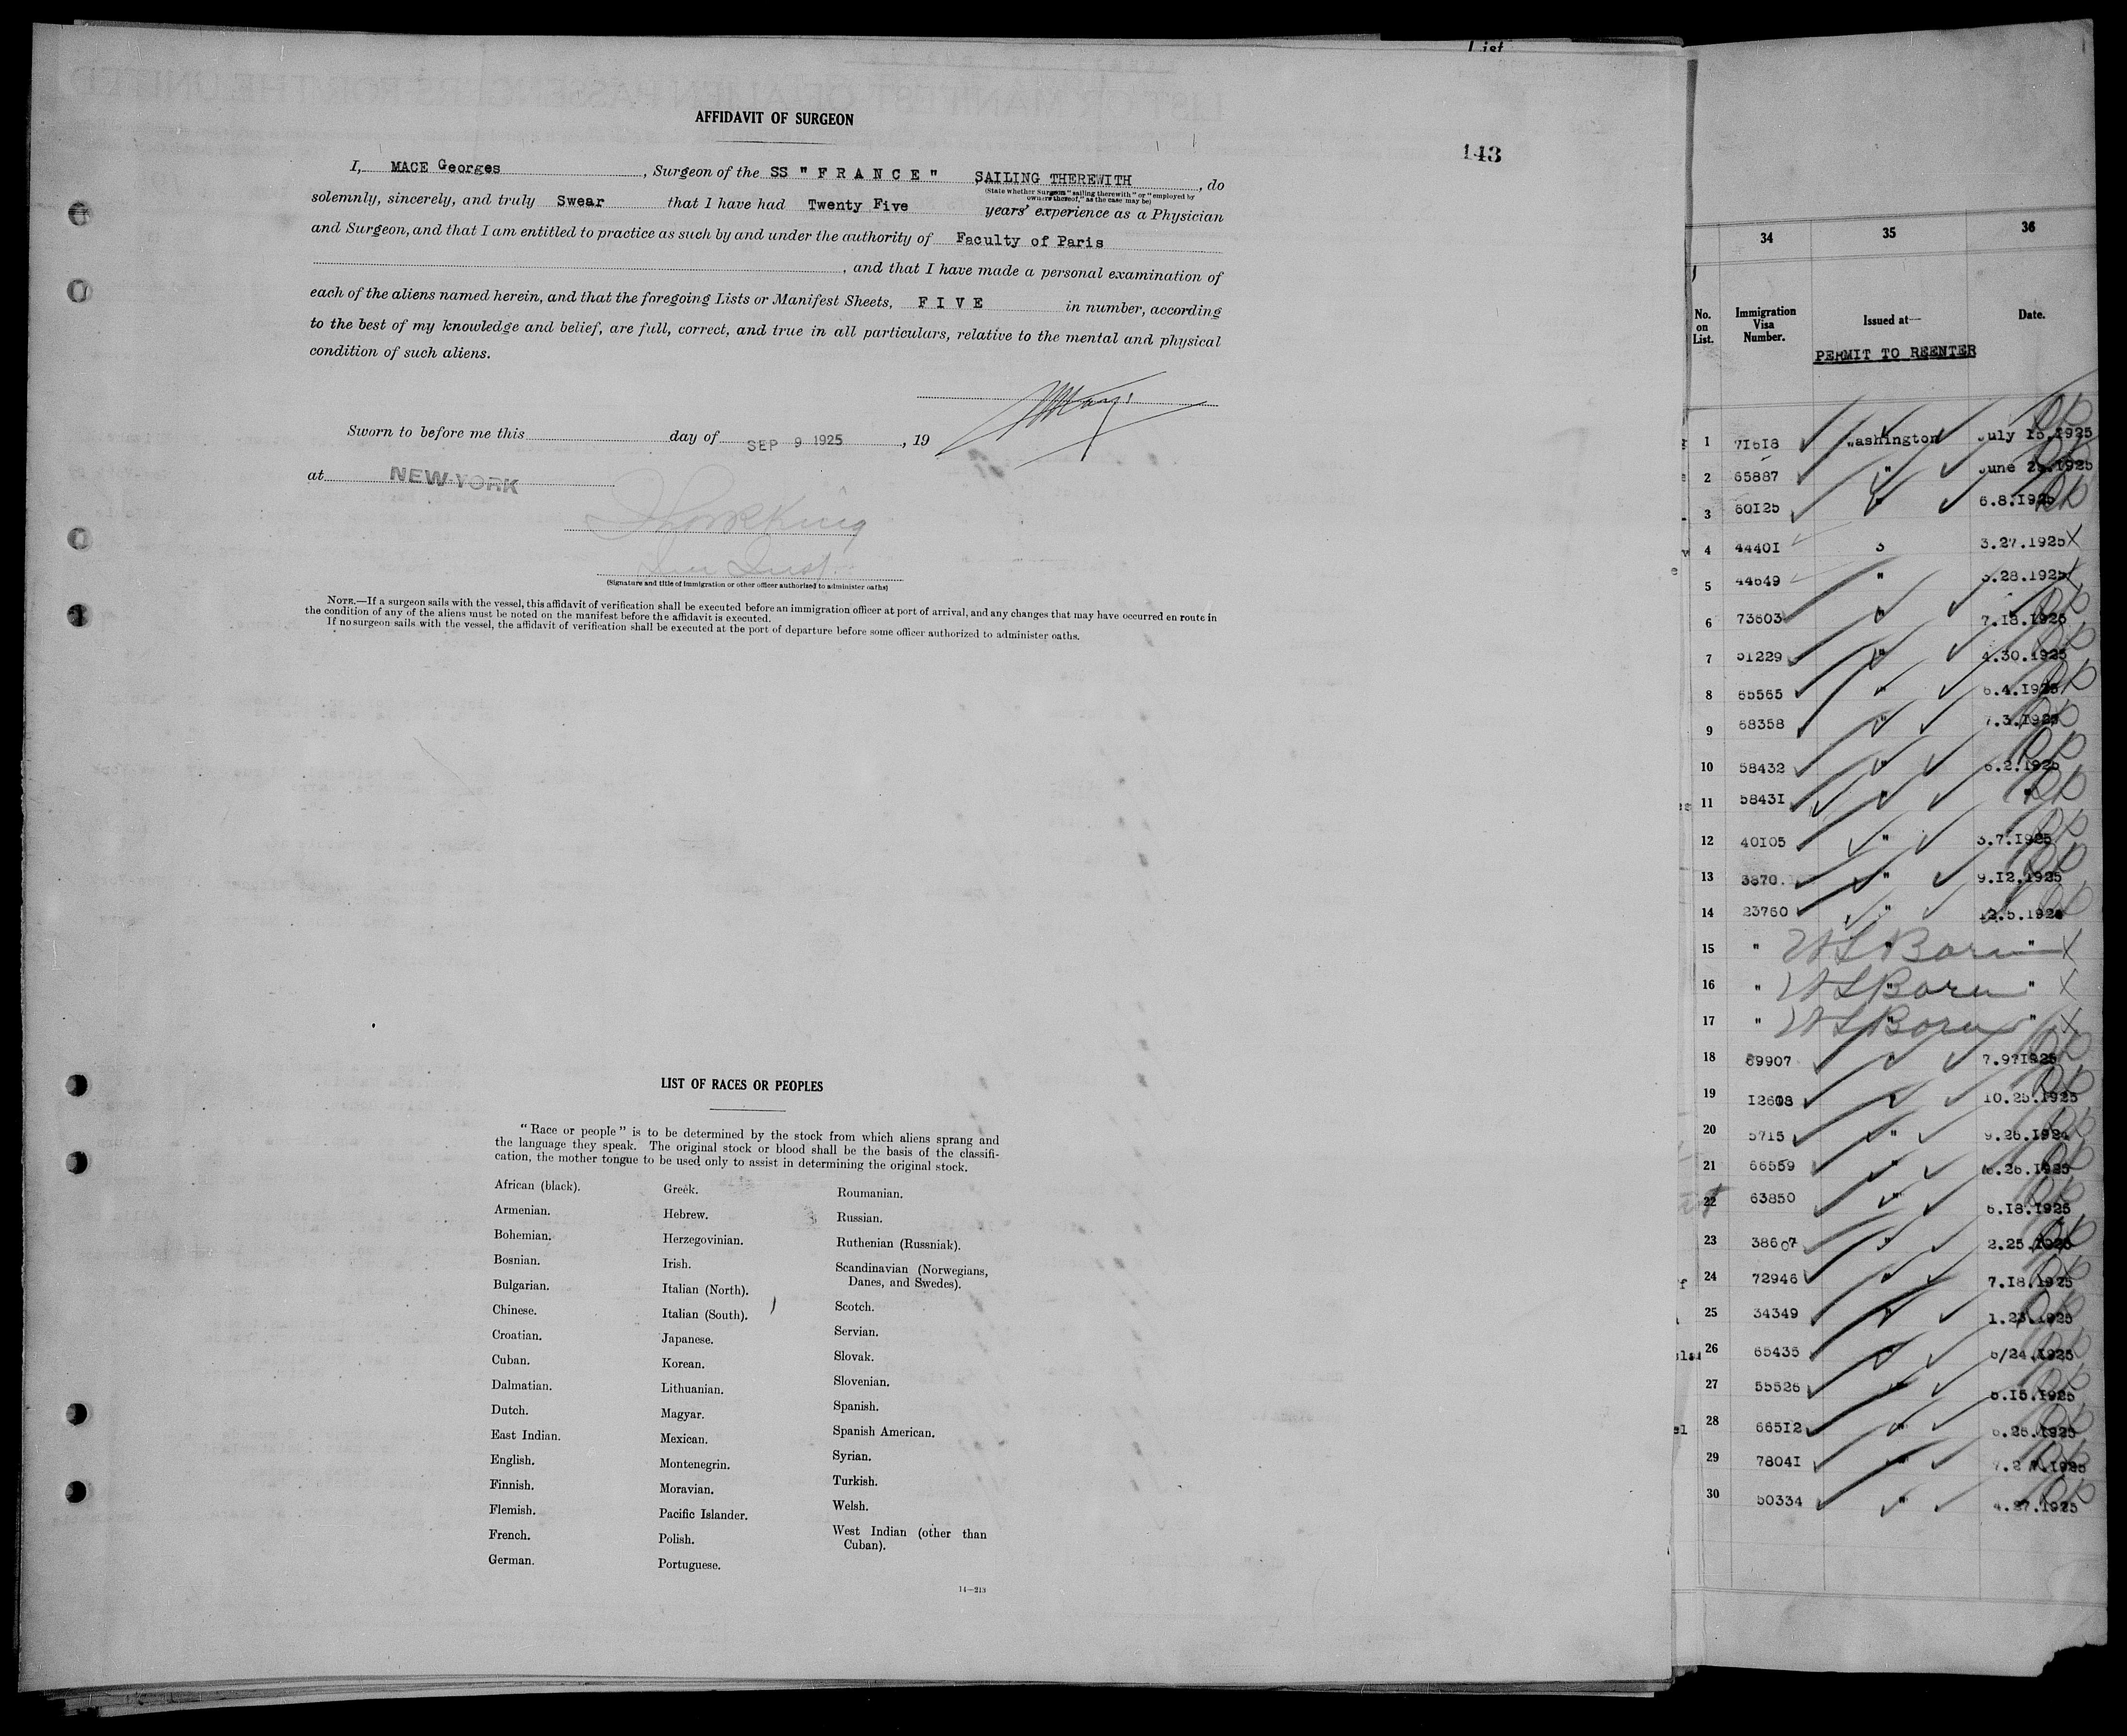 List
AFFIDAVIT OF SURGEON
143
I, MACE Georges, Surgeon of the SS " F R A N C E " SAILING THEREWITH, do
(State whether Surgeon "sailing therewith" or "employed by
owners thereof," as the case may be)
solemnly, sincerely, and truly Swear that I have had Twenty Five years' experience as a Physician
and Surgeon, and that I am entitled to practice as such by and under the authority of Faculty of Paris
, and that I have made a personal examination of
each of the aliens named herein, and that the foregoing Lists or Manifest Sheets, F I V E in number, according
to the best of my knowledge and belief, are full, correct, and true in all particulars, relative to the mental and physical
condition of such aliens.
Sworn to before me this day of SEP 9 1925, 19
at NEW-YORK
(Signature and title of immigration or other officer authorized to administer oaths)
NOTE.—If a surgeon sails with the vessel, this affidavit of verification shall be executed before an immigration officer at port of arrival, and any changes that may have occurred en route in
the condition of any of the aliens must be noted on the manifest before the affidavit is executed.
If no surgeon sails with the vessel, the affidavit of verification shall be executed at the port of departure before some officer authorized to administer oaths.
LIST OF RACES OR PEOPLES
"Race or people" is to be determined by the stock from which aliens sprang and
the language they speak. The original stock or blood shall be the basis of the classifi-
cation, the mother tongue to be used only to assist in determining the original stock.
African (black).
Armenian.
Bohemian.
Bosnian.
Bulgarian.
Chinese.
Croatian.
Cuban.
Dalmatian.
Dutch.
East Indian.
English.
Finnish.
Flemish.
French.
German.
Greek.
Hebrew.
Herzegovinian.
Irish.
Italian (North).
Italian (South).
Japanese.
Korean.
Lithuanian.
Magyar.
Mexican.
Montenegrin.
Moravian.
Pacific Islander.
Polish.
Portuguese.
Roumanian.
Russian.
Ruthenian (Russniak).
Scandinavian (Norwegians,
Danes, and Swedes).
Scotch.
Servian.
Slovak.
Slovenian.
Spanish.
Spanish American.
Syrian.
Turkish.
Welsh.
West Indian (other than
Cuban).
14—213
34 35 36
No. on List. Immigration Visa Number. Issued at— Date.
PERMIT TO REENTER
1 71618 Washington July 15.1925
2 65887 " June 1925
3 60125 " 6.8.1925
4 44401 3.27.1925
5 44649 " 3.28.1925
6 73603 " 7.18.1925
7 51229 " 4.30.1925
8 65565 " 6.4.1925
9 68358 " 7.3.1925
10 58432 " 6.2.1925
11 58431 " "
12 40105 " 3.7.1925
13 3870. " 9.12.1925
14 23760 " 12.5.192
15 " US Born "
16 " US Born "
17 " US Born "
18 69907 " 7.9?1925
19 126 10.25.1925
20 5715 " 9.26.1924
21 66559 " 6.26.1925
22 63850 " 6.18.1925
23 38607 " 2.25.1925
24 72946 " 7.18.1925
25 34349 " 1.23.1925
26 65435 " 6/24.1925
27 55526 " 1925
28 66512 " 1925
29 78041 " 1925
30 50334 " 4.27.1925